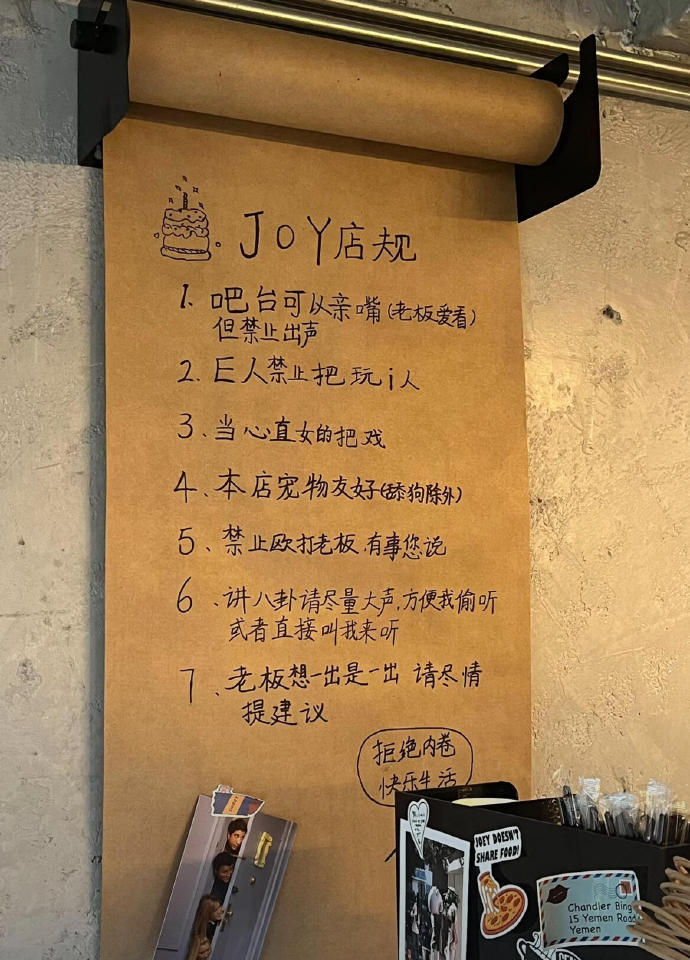 JOY店规
1. 吧台可以亲嘴(老板爱看)
但禁止出声
2. E人禁止把玩i人
3、当心直女的把戏
4、本店宠物友好(舔狗除外)
5、禁止欧打老板,有事您说
6、讲八卦请尽量大声,方便我偷听
或者直接叫我来听
7、老板想一出是一出 请尽情
提建议
拒绝内卷
快乐生活
JOEY DOESN'T
SHARE FOOD!
Chandler Bing
15 Yemen Road
Yemen